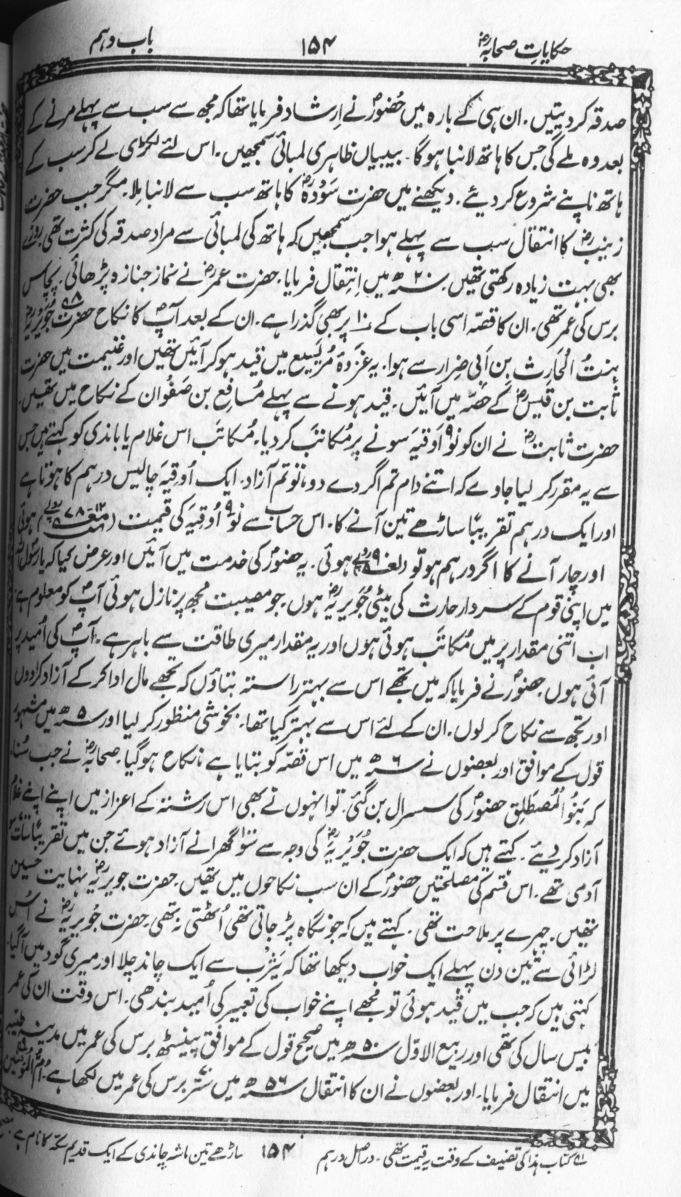 حکایاتِ صحابہؓ ۱۵۴ باب دہم
صدقہ کردیتیں۔ ان ہی کے بارہ میں حضورؐ نے ارشاد فرمایا تھا کہ مجھ سے سب سے پہلے مرنے کے
بعد وہ ملے گی جس کا ہاتھ لانبا ہوگا۔ بیبیاں ظاہری لمبائی سمجھیں۔ اس لئے لکڑی لے کر سب کے
ہاتھ ناپنے شروع کردیئے۔ دیکھنے میں حضرت سَودہؓ کا ہاتھ سب سے لانبا نکلا۔ مگر جب حضرت
زینبؓ کا انتقال سب سے پہلے ہوا جب سمجھیں کہ ہاتھ کی لمبائی سے مراد صدقہ کی کثرت تھی۔ روزے
بھی بہت زیادہ رکھتی تھیں۔ ۲۰ھ میں انتقال فرمایا۔ حضرت عمرؓ نے نمازِ جنازہ پڑھائی۔ پچاس
برس کی عمر تھی۔ ان کا قصّہ اسی باب کے ۱۰ پر بھی گذرا ہے۔ ان کے بعد آپؐ کا نکاح حضرت جُوَیریہؓ
بنتُ الحارث بن اَبی ضِرار سے ہوا۔ یہ غزوۂ مُریسیع میں قید ہوکر آئیں تھیں اور غنیمت میں حضرت
ثابت بن قیسؓ کے حصّہ میں آئیں۔ قید ہونے سے پہلے مُسافع بن صفوان کے نکاح میں تھیں۔
حضرت ثابتؓ نے ان کو نو۹ اَوقیہ سونے پر مُکاتَب کردیا۔ مُکاتَب اس غلام یا باندی کو کہتے ہیں جس
سے یہ مقرر کر لیا جاوے کہ اتنے دام تم اگر دے دو، تو تم آزاد۔ ایک اُوقیہ چالیس درہم کا ہوتا ہے
اور ایک درہم تقریبًا ساڑھے تین آنے کا۔ اس حساب سے نو۹ اُوقیہ کی قیمت ہوئی
اور چار آنے کا اگر درہم ہو تو ہوئی۔ یہ حضورؐ کی خدمت میں آئیں اور عرض کیا کہ یا رسول اللہ
میں اپنی قوم کے سردار حارث کی بیٹی جُوَیریہؓ ہوں۔ جو مصیبت مجھ پر نازل ہوئی آپؐ کو معلوم ہے
اب اتنی مقدار پر میں مُکاتَب ہوئی ہوں اور یہ مقدار میری طاقت سے باہر ہے۔ آپؐ کی اُمید پر
آئی ہوں۔ حضورؐ نے فرمایا کہ میں تجھے اس سے بہتر راستہ بتاؤں کہ تجھے مال ادا کرکے آزاد کرادوں
اور تجھ سے نکاح کرلوں۔ ان کے لئے اس سے بہتر کیا تھا۔ بخوشی منظور کر لیا اور ۵ھ میں مشہور
قول کے موافق اور بعضوں نے ۶ھ میں اس قصّہ کو بتایا ہے نکاح ہوگیا۔ صحابہؓ نے جب سُنا
کہ بنُو المُصطلِق حضورؐ کی سسرال بن گئی۔ تو انہوں نے بھی اس رشتہ کے اعزاز میں اپنے اپنے غلام
آزاد کر دیئے۔ کہتے ہیں کہ ایک حضرت جُوَیریہؓ کی وجہ سے سَو گھرانے آزاد ہوئے جن میں تقریبًا سات سو
آدمی تھے۔ اس قسم کی مصلحتیں حضورؐ کے ان سب نکاحوں میں تھیں۔ حضرت جویریہؓ نہایت حسین
تھیں۔ چہرے پر ملاحت تھی۔ کہتے ہیں کہ جو نگاہ پڑ جاتی تھی اُٹھتی نہ تھی۔ حضرت جُویریہؓ نے اس
لڑائی سے تین دن پہلے ایک خواب دیکھا تھا کہ یثرب سے ایک چاند چلا اور میری گود میں آگیا
کہتی ہیں کہ جب میں قید ہوئی تو مجھے اپنے خواب کی تعبیر کی اُمید بندھی۔ اس وقت ان کی عمر
بیس سال کی تھی اور ربیع الاوّل ۵۰ھ میں صحیح قول کے موافق پینسٹھ برس کی عمر میں مدینہ طیبہ
میں انتقال فرمایا۔ اور بعضوں نے ان کا انتقال ۵۶ھ میں ستر برس کی عمر میں لکھا ہے۔ اُم المؤمنین
کتاب ہذا کی تصنیف کے وقت یہ قیمت تھی۔ دراصل درہم ۱۵۴ ساڑھے تین ماشہ چاندی کے ایک قدیم سکّہ کا نام ہے